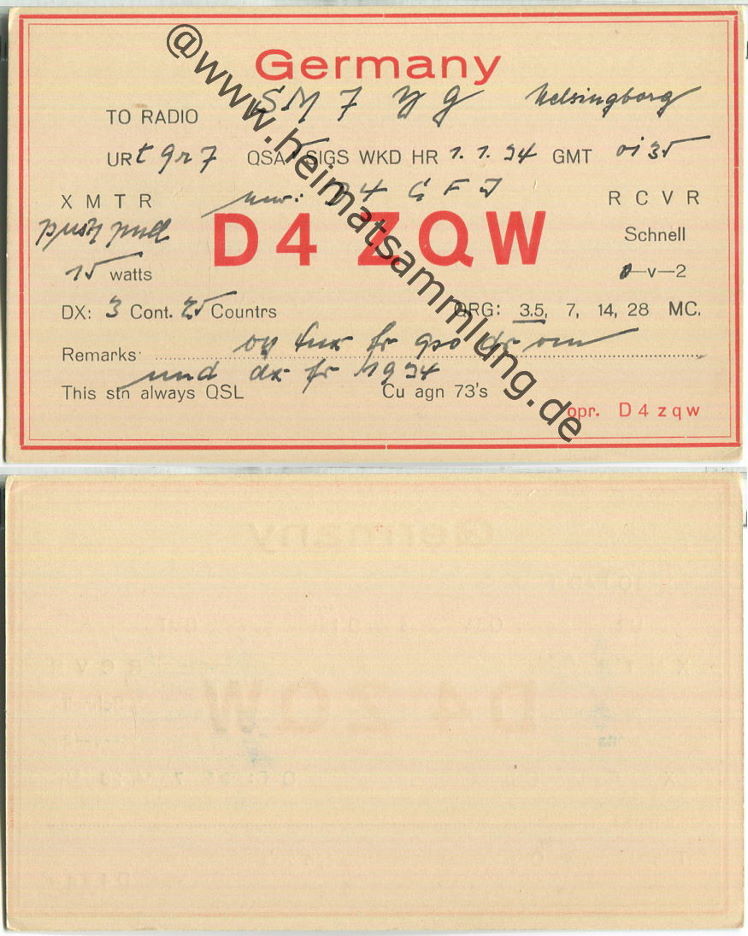 Germany
TO RADIO SM 7 YG Helsingborg
UR t 9 r 7 QSA SIGS WKD HR 1. 1. 34 GMT 0135
XMTR nw: D4 GFI RCVR
push pull D4 ZQW Schnell
15 watts -v-2
DX: 3 Cont. 25 Countrs QRG: 3.5, 7, 14, 28 MC.
Remarks tnx fr qso dr om
This stn always QSL und dx fr 1934 Cu agn 73's
opr. D4zqw
@www.heimatsammlung.de